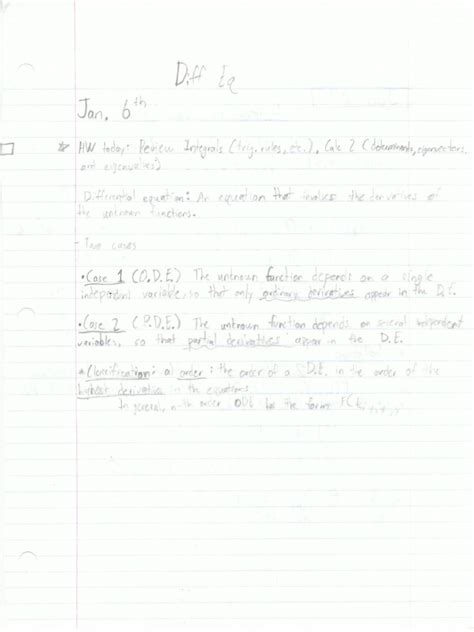 Diff Eq
Jan. 6th
☆ HW today: Review Integrals (trig. rules, etc.), Calc 2 (determinants, eigenvectors,
and eigenvalues)
Differential equation: An equation that involves the derivatives of
the unknown functions.
- Two cases
• Case 1 (O.D.E.) The unknown function depends on a single
variable, so that only ordinary derivatives appear in the D.E.
• Case 2 (P.D.E.) The unknown function depends on several independent
variables, so that partial derivatives appear in the D.E.
Classification: a) order: the order of a D.E. is the order of the
highest derivative in the equations.
In general, n-th order ODE has the form F(t,